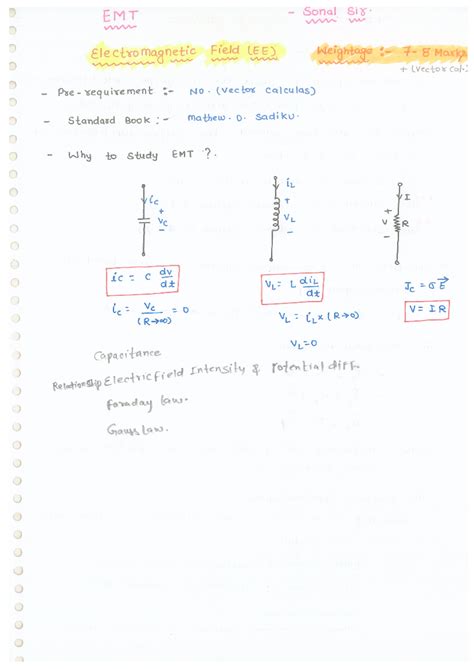 EMT - Sonal Sir.
Electromagnetic Field (EE) Weightage :- 7-8 Marks
+ (Vector Cal.
- Pre-requirement :- NO. (Vector calculas)
- Standard Book :- mathew. O. Sadiku.
- Why to Study EMT ?.
ic + Vc -
iL + VL -
I + V R -
ic = C dv/dt
VL = L diL/dt
Jc = σE⃗
ic = Vc/(R→∞) = 0
VL = iL×(R→0)
V = IR
VL=0
Capacitance
Relationship Electric field Intensity & Potential diff.
Faraday law.
Gauss law.